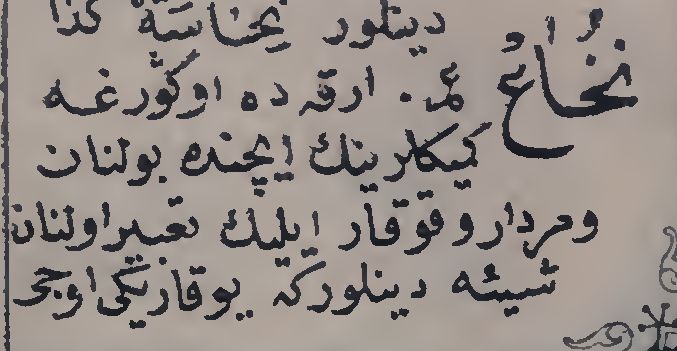 دینلور نحناسَة کذا
نُخَاعْ مح. ارقه ده اوکورغه
کمیکلرینك ایچنده بولنان
ومردار و قوقار ایلیك تعبیراولنان
شیئه دینلورکه یوقاریکی اوجی